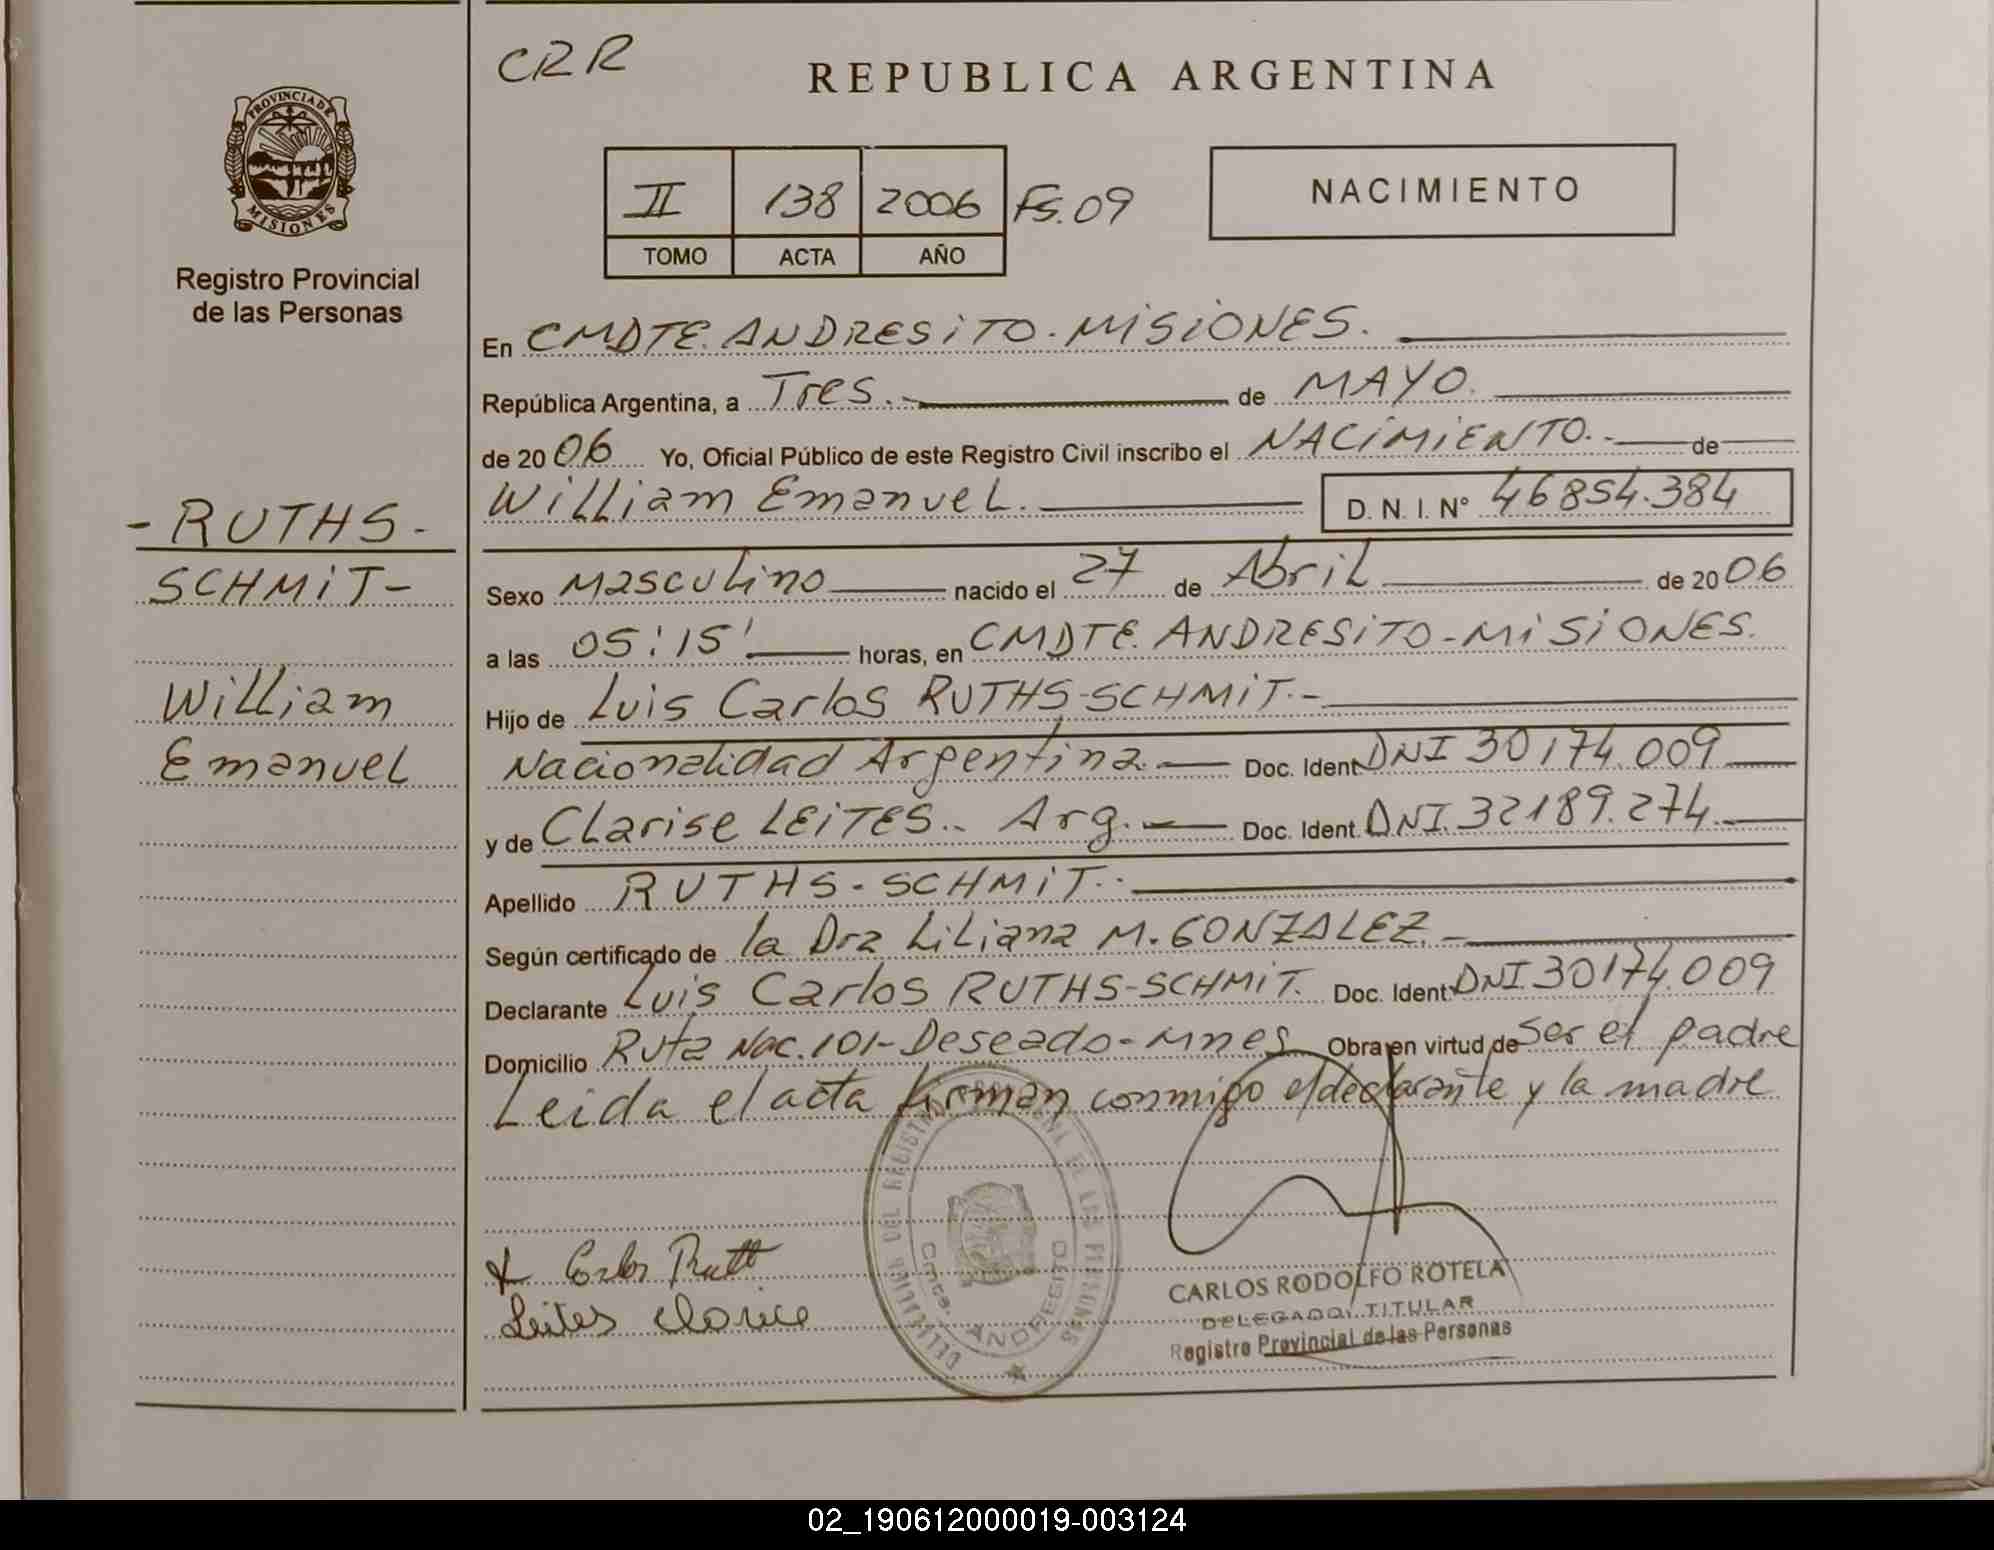 CRR
REPUBLICA ARGENTINA
PROVINCIA DE MISIONES
Registro Provincial
de las Personas
II 138 2006 Fs. 09
TOMO ACTA AÑO
NACIMIENTO
En CMDTE. ANDRESITO - MISIONES.
República Argentina, a Tres. de MAYO.
de 2006 Yo, Oficial Público de este Registro Civil inscribo el NACIMIENTO. de
William Emanuel. D. N. I. N° 46854.384
- RUTHS -
SCHMIT-
William
Emanuel
Sexo Masculino nacido el 27 de Abril de 2006
a las 05:15' horas, en CMDTE. ANDRESITO - MISIONES.
Hijo de Luis Carlos RUTHS-SCHMIT.-
Nacionalidad Argentina.- Doc. Ident. DNI 30174.009
y de Clarise LEITES.. Arg.- Doc. Ident. DNI. 32189.274.
Apellido RUTHS-SCHMIT..
Según certificado de la Dra Liliana M. GONZALEZ.-
Declarante Luis Carlos RUTHS-SCHMIT. Doc. Ident. DNI.30174.009
Domicilio Ruta Nac. 101-Deseado-Mnes Obra en virtud de ser el padre
Leida el acta firman conmigo el declarante y la madre
Leites Clarice
DELEGADO TITULAR
CARLOS RODOLFO ROTELA
Registro Provincial de las Personas
Cmte. ANDRESITO
02_190612000019-003124